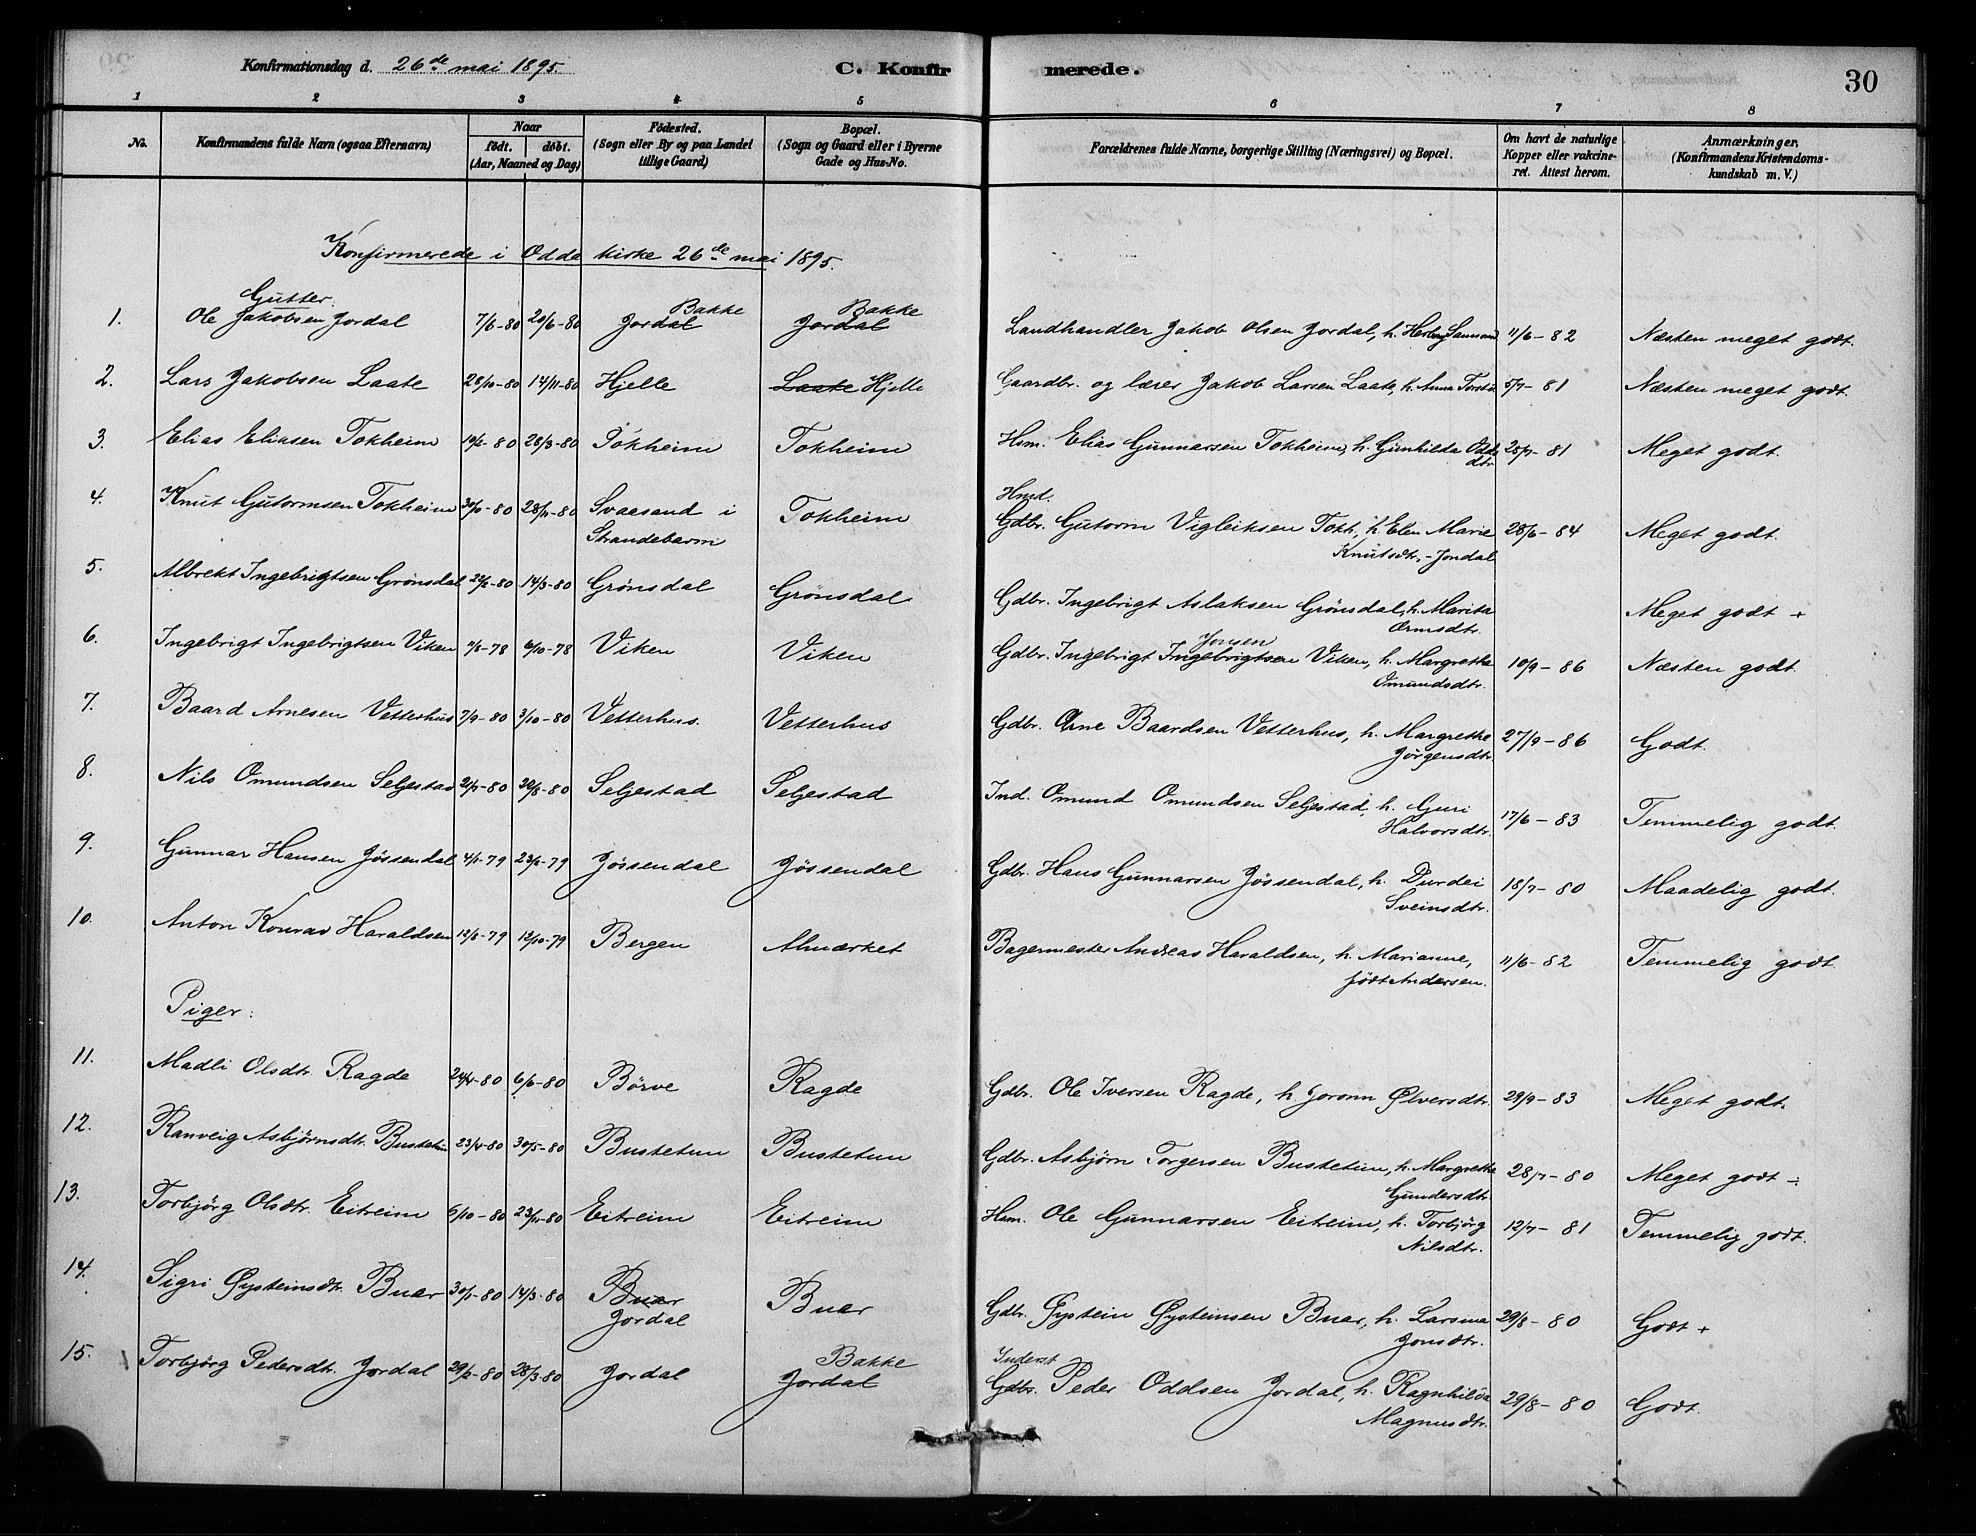 Konfirmationsdag d. 26de mai 1895.
C. Konfirmerede.
30
1 2 3 4 5 6 7 8
No.
Konfirmandens fulde Navn (ogsaa Efternavn)
Naar
født. døbt.
(Aar, Maaned og Dag)
Fødested.
(Sogn eller By og paa Landet
tillige Gaard)
Bopæl.
(Sogn og Gaard eller i Byerne
Gade og Hus-No.
Forældrenes fulde Navne, borgerlige Stilling (Næringsvei) og Bopæl.
Om havt de naturlige
Kopper eller vakcine-
ret. Attest herom.
Anmærkninger.
(Konfirmandens Kristendoms-
kundskab m. V.)
Konfirmerede i Odda kirke 26de mai 1895.
Gutter:
Bakke Bakke
1. Ole Jakobsen Jordal 7/6-80 20/6-80 Jordal Jordal Landhandler Jakob Olsen Jordal, h. 11/6-82 Næsten meget godt.
2. Lars Jakobsen Laate 28/10-80 14/11-80 Hjelle Laate Hjelle Gaardbr. og lærer Jakob Larsen Laate, h. Anna 5/7-81 Næsten meget godt.
3. Elias Eliasen Tokheim 10/2-80 28/3-80 Tokheim Tokheim Hsm. Elias Gunnarsen Tokheim, h. Gunhilda Odds 25/7-81 Meget godt.
dtr.
Hmd.
4. Knut Gutormsen Tokheim 28/11-80 Svaasand i Tokheim Gdbr. Gutorm Vigleiksen Tokh., h. Elen Marie 28/6-84 Meget godt.
Strandebarm Knutsdtr.-Jondal
5. Albrekt Ingebrigtsen Grönsdal 22/2-80 14/3-80 Grönsdal Grönsdal Gdbr. Ingebrigt Aslaksen Grönsdal, h. Marita Meget godt +
Ormsdtr.
Jonsen
6. Ingebrigt Ingebrigtsen Viken 11/8-78 6/10-78 Viken Viken Gdbr. Ingebrigt Ingebrigtsen Viken, h. Margretha 10/9-86 Næsten godt.
Omundsdtr.
7. Baard Arnesen Vetterhus 7/9-80 3/10-80 Vetterhus. Vetterhus Gdbr. Arne Baardsen Vetterhus, h. Margretha 27/9-86 Godt.
Jörgensdtr.
8. Nils Omundsen Seljestad 21/7-80 Seljestad Seljestad Ind. Omund Omundsen Seljestad, h. Guri 17/6-83 Temmelig godt.
Halvorsdtr.
9. Gunnar Hansen Jössendal 4/1-79 23/2-79 Jössendal Jössendal Gdbr. Hans Gunnarsen Jössendal, h. Durdei 18/7-80 Maadelig godt.
Sveinsdtr.
10. Anton Konrad Haraldsen 12/8-79 12/10-79 Bergen Almerket Bagermester Andreas Haraldsen, h. Marianne, 11/6-82 Temmelig godt.
födt Andersen.
Piger:
11. Madli Olsdtr. Ragde 24/4-80 6/6-80 Börve Ragde Gdbr. Ole Iversen Ragde, h. Joronn Ølversdtr. 29/9-83 Meget godt.
12. Ranveig Asbjørnsdtr. Bustetun 23/4-80 30/5-80 Bustetun Bustetun Gdbr. Asbjørn Torgersen Bustetun, h. Margretha 28/7-80 Meget godt ÷
Gundersdtr.
13. Torbjörg Olsdtr. Eitreim 6/10-80 23/11-80 Eitreim Eitreim Hsm. Ole Gunnarsen Eitreim, h. Torbjörg 12/7-81 Temmelig godt.
Nilsdtr.
14. Sigri Øysteinsdtr. Buer 30/1-80 14/3-80 Buer Buer Gdbr. Øystein Øysteinsen Buer, h. Larsina 29/8-80 Godt +
Jordal Jonsdtr.
Bakke Inderst
15. Torbjörg Pedersdtr. Jordal 29/2-80 28/3-80 Jordal Jordal Gdbr. Peder Oddsen Jordal, h. Ragnhilda 29/8-80 Godt.
Magnusdtr.